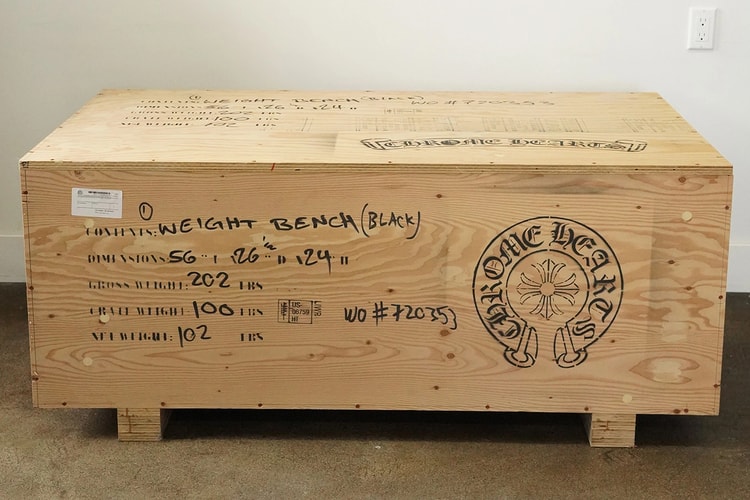 CONTENTS: WEIGHT BENCH (BLACK) WO #720353
DIMENSIONS: 56 " L 26 " D 24 " H
GROSS WEIGHT: 202 LBS
CRATE WEIGHT: 100 LBS
NET WEIGHT: 102 LBS
CHROME HEARTS
① CONTENTS: WEIGHT BENCH (BLACK)
DIMENSIONS: 56 " L 26 " D 24 " H
GROSS WEIGHT: 202 LBS
CRATE WEIGHT: 100 LBS WO #720353
NET WEIGHT: 102 LBS
CHROME HEARTS